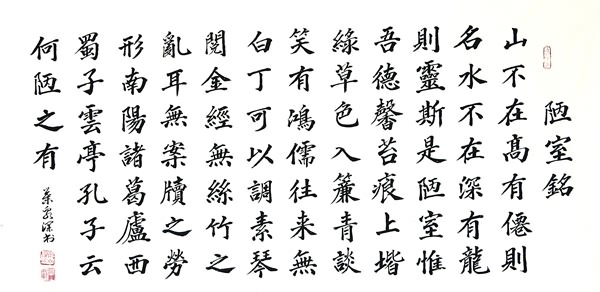 陋室銘
山不在髙有僊則
名水不在深有龍
則靈斯是陋室惟
吾德馨苔痕上堦
綠草色入簾青談
笑有鴻儒往来無
白丁可以調素琴
閱金經無絲竹之
亂耳無案牘之勞
形南陽諸葛廬西
蜀子雲亭孔子云
何陋之有